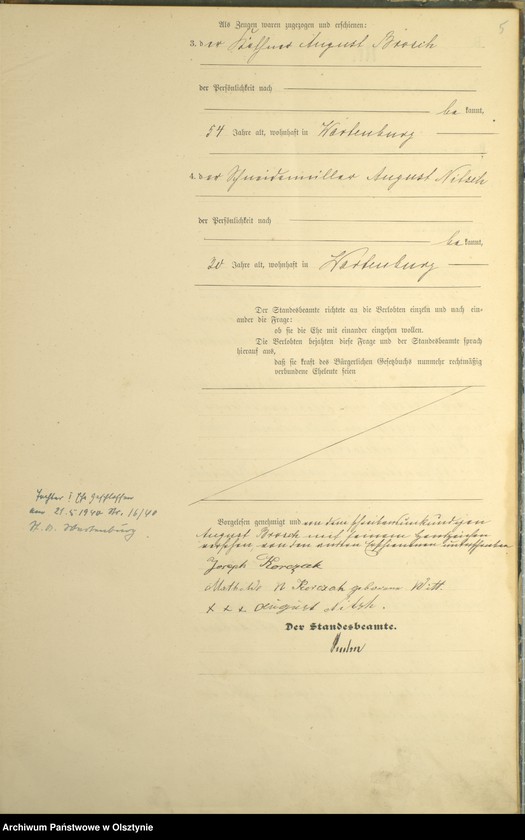 5
Als Zeugen waren zugezogen und erschienen:
3. der August Brosch
der Persönlichkeit nach
be kannt,
54 Jahre alt, wohnhaft in Wartenburg
4. der Schneidemüller August Nitsch
der Persönlichkeit nach
be kannt,
Jahre alt, wohnhaft in Wartenburg
Der Standesbeamte richtete an die Verlobten einzeln und nach ein-
ander die Frage:
ob sie die Ehe mit einander eingehen wollen.
Die Verlobten bejahten diese Frage und der Standesbeamte sprach
hierauf aus,
daß sie kraft des Bürgerlichen Gesetzbuchs nunmehr rechtmäßig
verbundene Eheleute seien
Tochter I Ehe geschlossen
am 21.5.1940 Nr. 16/40
St. A. Wartenburg
Vorgelesen genehmigt und von dem schreibensunkundigen
August Brosch mit seinem Handzeichen
versehen, von den andern Erschienenen unterschrieben
Joseph Korczak
Korczak geborene Witt
+ + + August Nitsch.
Der Standesbeamte.
Archiwum Państwowe w Olsztynie